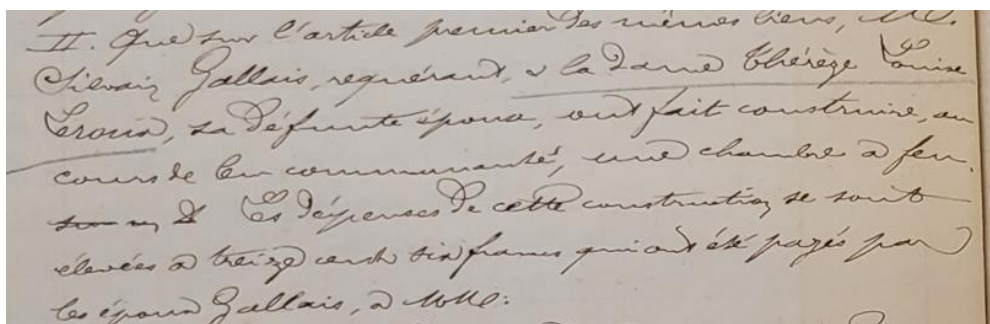 II. Que sur l'article premier des mêmes biens, M.
Silvain Gallais, requérant, & la dame Thérèze Louise
Leroux, sa défunte épouse, ont fait construire, au
cours de leur communauté, une chambre à feu.
Les dépenses de cette construction se sont
élevées à treize cents six francs qui ont été payés par
les époux Gallais, à MM: